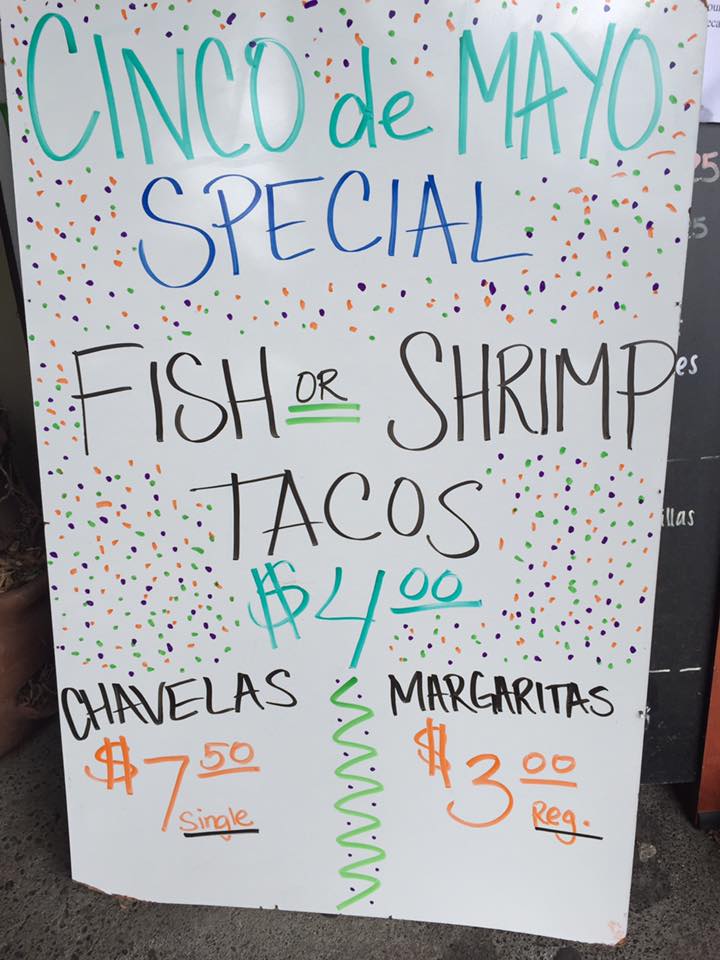 CINCO de MAYO
SPECIAL
FISH OR SHRIMP
TACOS
$4.00
CHAVELAS
$7.50
Single
MARGARITAS
$3.00
Reg.